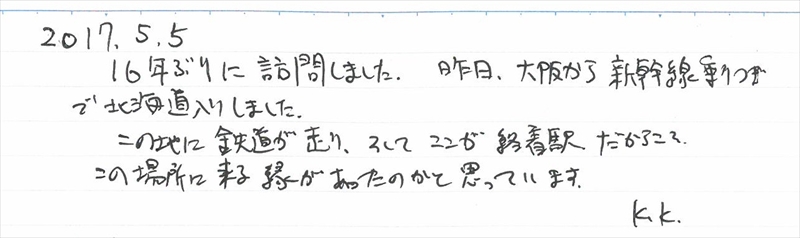 2017.5.5
16年ぶりに訪問しました. 昨日、大阪から新幹線乗りつぎ
で北海道入りしました.
この地に鉄道が走り、そしてここが終着駅だからこそ
この場所に来る縁があったのかと思っています.
K.K.